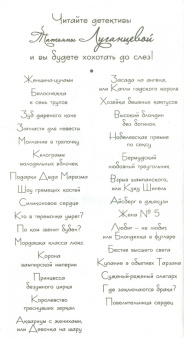 Читайте детективы
Татьяны Луганцевой
и вы будете хохотать до слез!
Женщина-цунами
Белоснежка
и семь трупов
Зуб дареного коня
Запчасти для невесты
Молчание в тряпочку
Килограмм
молодильных яблочек
Подарки Деда Маразма
Шоу гремящих костей
Силиконовое сердце
Кто в теремочке умрет?
По ком звонит бубен?
Мордашка класса люкс
Корона
вампирской империи
Принцесса
безумного цирка
Королевство
треснувших зеркал
Аквариум с женихами,
или Девочка на шару
Засада на ангела,
или Капли гадского короля
Хозяйка бешеных кактусов
Высокий блондин
без ботинок
Нобелевская премия
по сексу
Бермудский
любовный треугольник
Варвы шампанского,
или Кукиш Шанель
Айсберг в джакузи
Жена № 5
Любит – не любит
или Блондинка в футляре
Бестия высшего света
Купание в объятиях Тарзана
Суженый-ряженый олигарх
Где заключаются браки?
Повелительница сердец